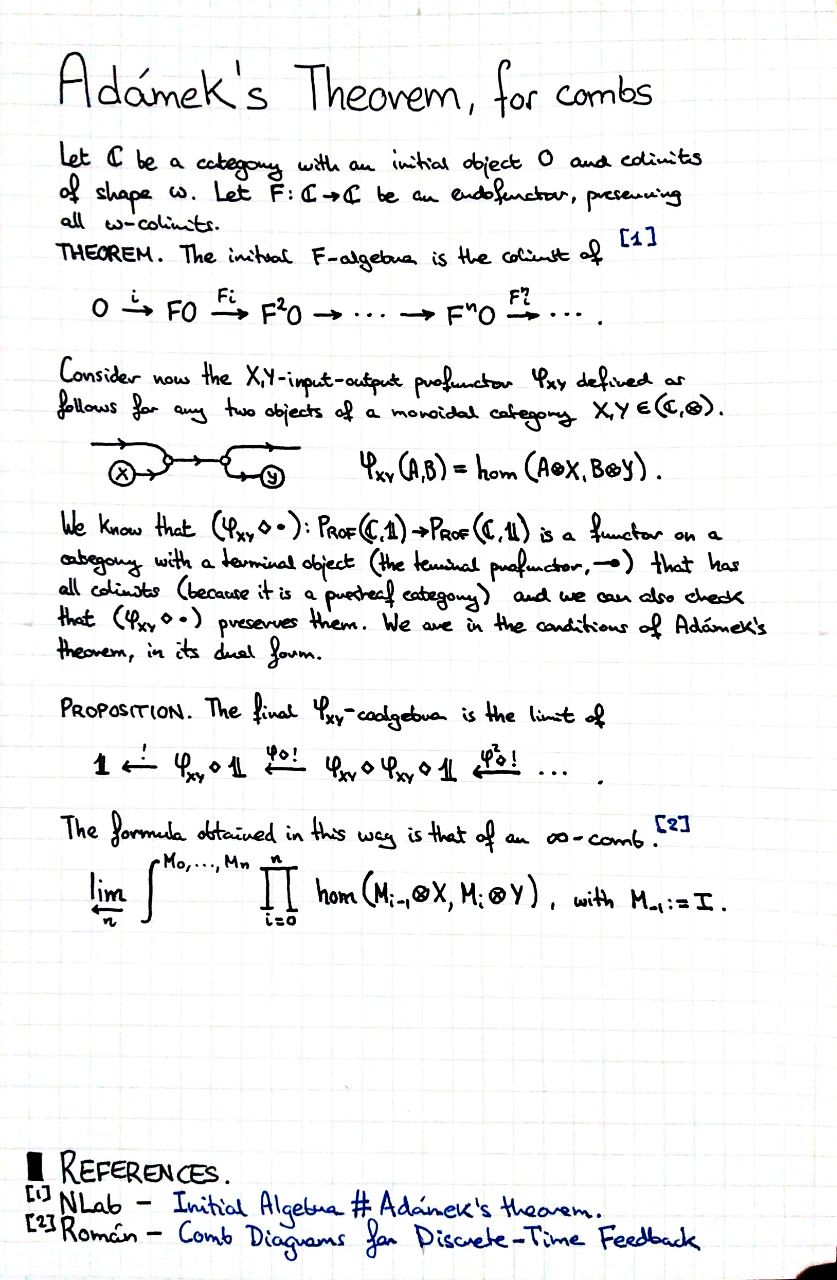 Adámek's Theorem, for combs
Let ℂ be a category with an initial object 0 and colimits
of shape ω. Let F: ℂ→ℂ be an endofunctor, preserving
all ω-colimits.
THEOREM. The initial F-algebra is the colimit of [1]
0 –i→ F0 –Fi→ F²0 → ··· → Fⁿ0 –Fⁿi→ ··· .
Consider now the X,Y-input-output profunctor φ_XY defined as
follows for any two objects of a monoidal category X,Y ∈ (ℂ,⊗).
X Y φ_XY (A,B) = hom (A⊗X, B⊗Y) .
We know that (φ_XY ⋄ •): PROF(ℂ,𝟙)→PROF(ℂ,𝟙) is a functor on a
category with a terminal object (the terminal profunctor, ⊸) that has
all colimits (because it is a presheaf category) and we can also check
that (φ_XY ⋄ •) preserves them. We are in the conditions of Adámek's
theorem, in its dual form.
PROPOSITION. The final φ_XY-coalgebra is the limit of
𝟙 ←!– φ_XY ⋄ 𝟙 ←φ⋄!– φ_XY ⋄ φ_XY ⋄ 𝟙 ←φ²⋄!– ··· .
The formula obtained in this way is that of an ∞-comb. [2]
lim←n ∫^{M₀,...,Mn} ∏_{i=0}^{n} hom (M_{i-1}⊗X, M_i⊗Y) , with M_{-1} := I .
REFERENCES.
[1] NLab – Initial Algebra # Adámek's theorem.
[2] Román – Comb Diagrams for Discrete-Time Feedback